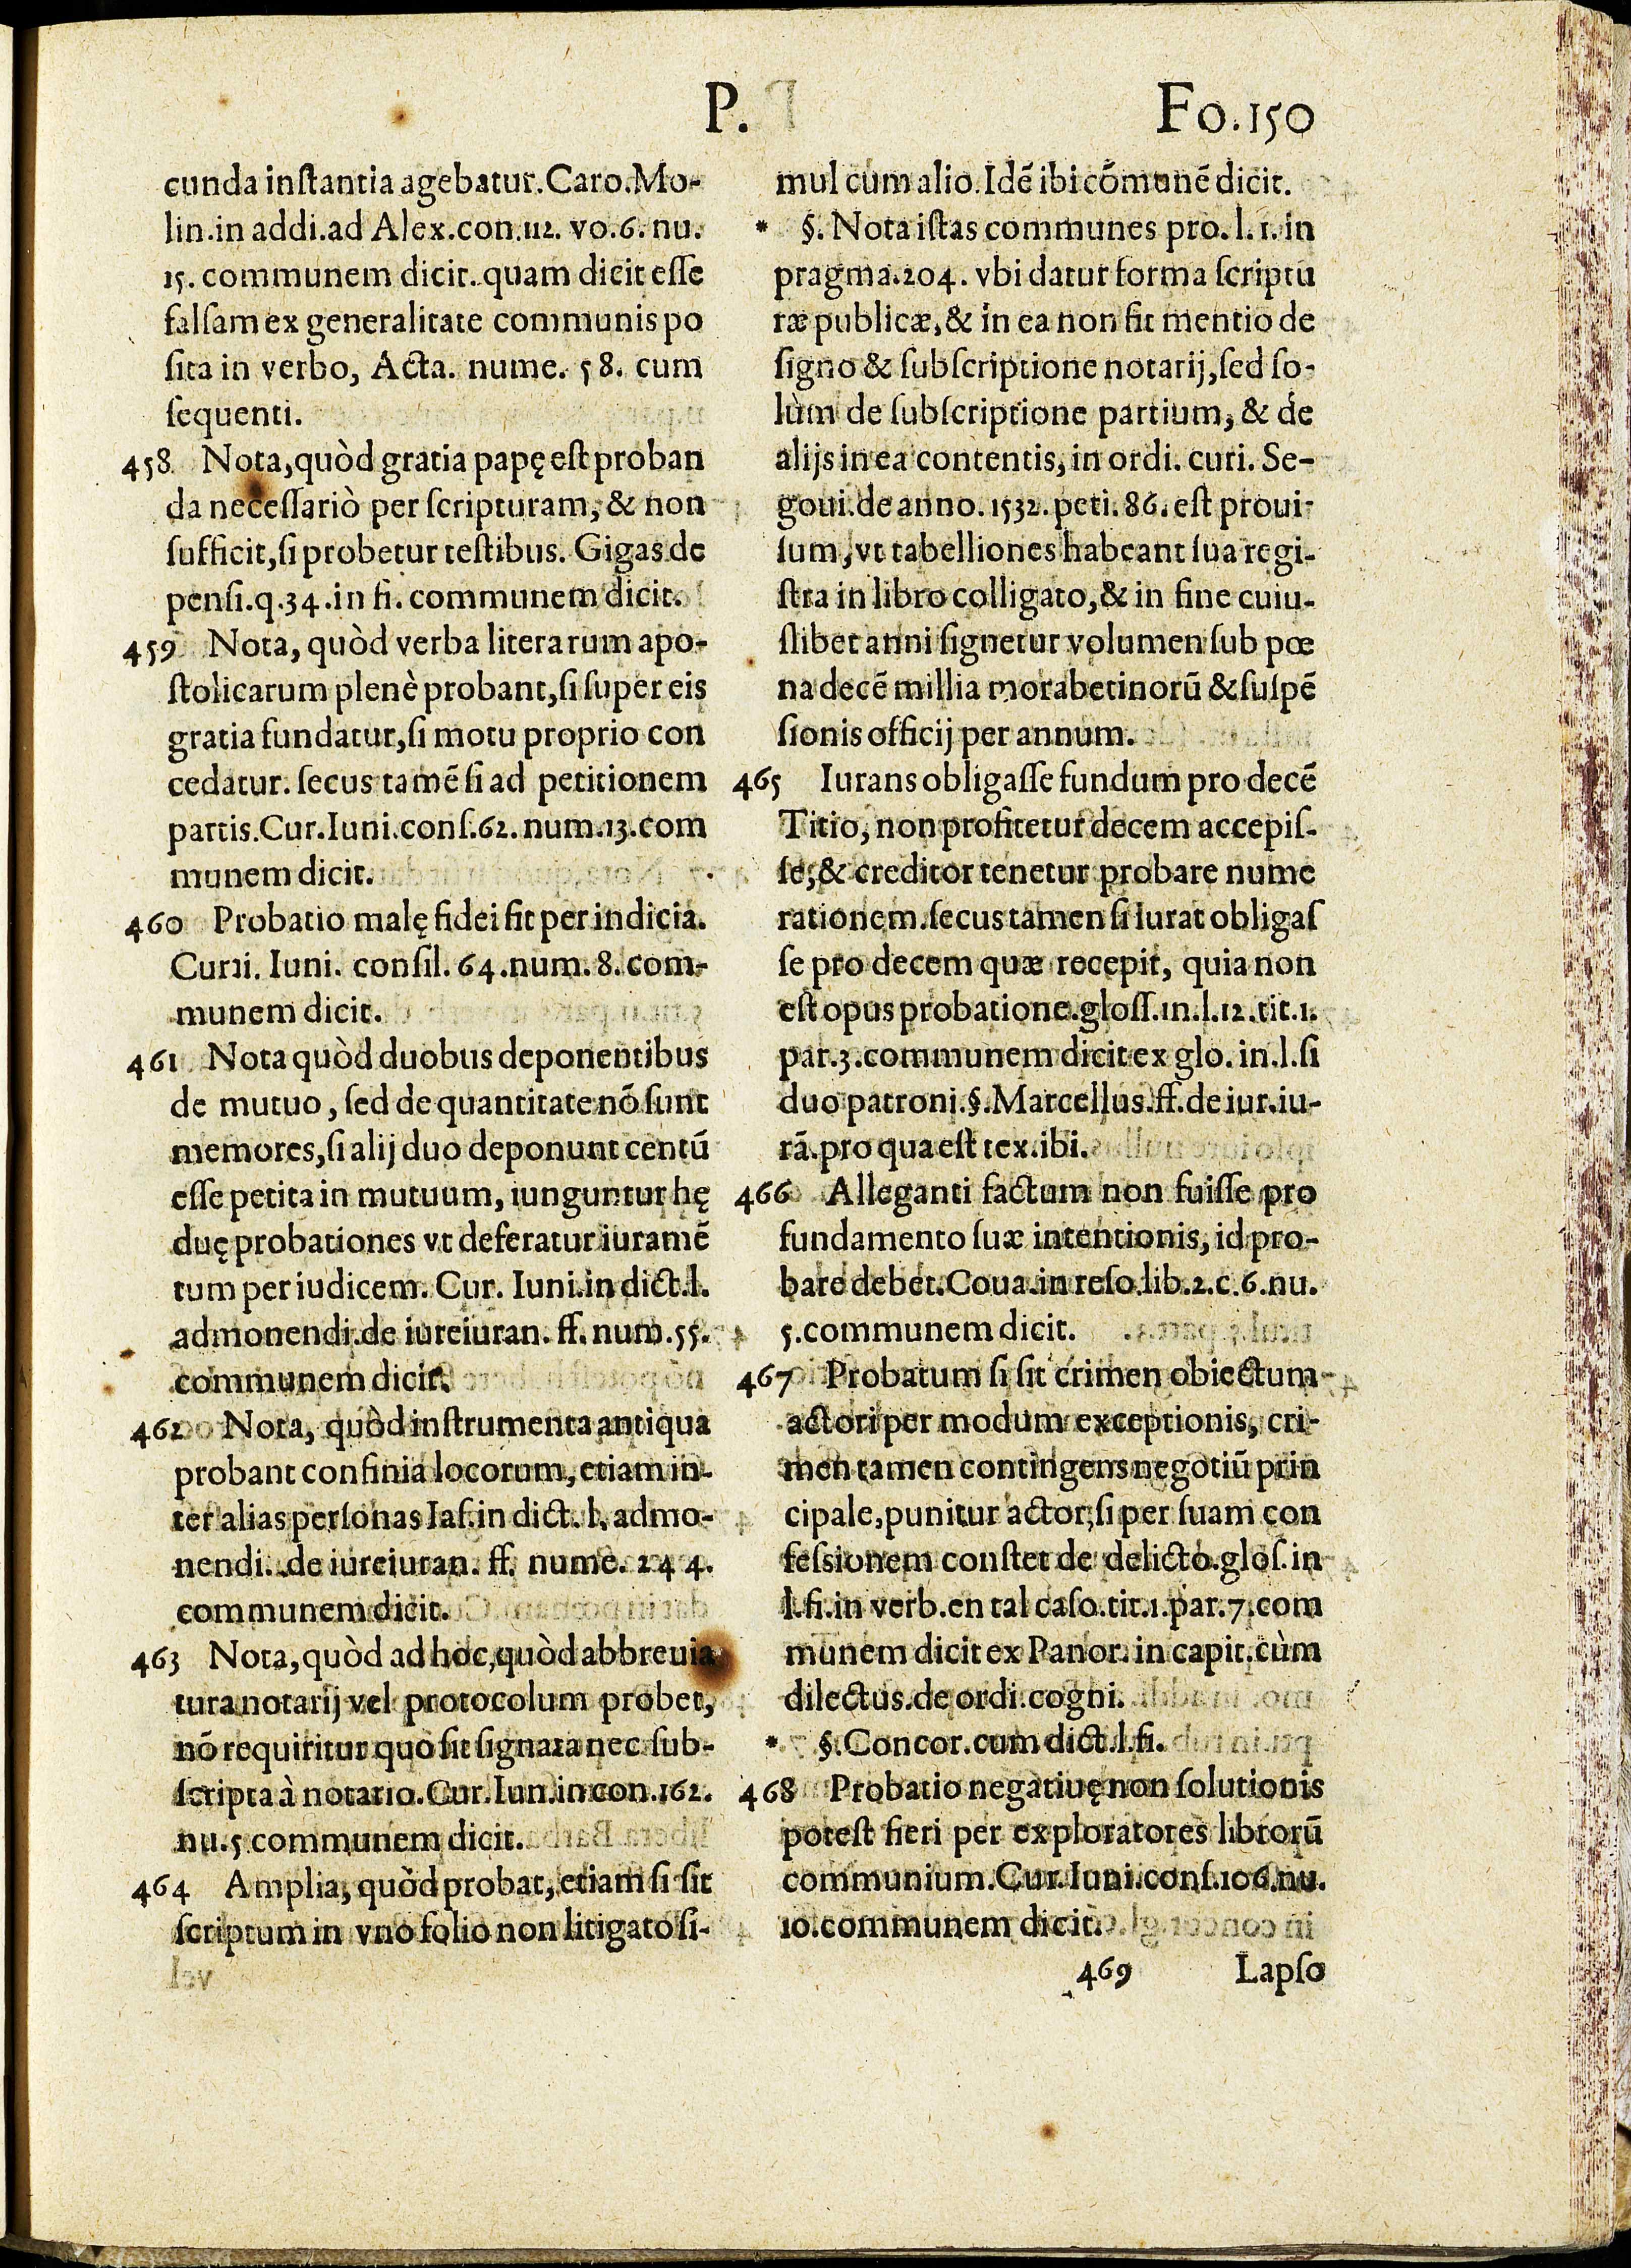 P.
Fo.150
cunda instantia agebatur. Caro. Mo-
lin. in addi. ad Alex. con. 112. vo. 6. nu.
15. communem dicit. quam dicit esse
falsam ex generalitate communis po
sita in verbo, Acta. nume. 58. cum
sequenti.
458 Nota, quòd gratia papę est proban
da necessariò per scripturam, & non
sufficit, si probetur testibus. Gigas de
pensi. q. 34. in fi. communem dicit.
459 Nota, quòd verba literarum apo-
stolicarum plenè probant, si super eis
gratia fundatur, si motu proprio con
cedatur. secus tamẽ si ad petitionem
partis. Cur. Iuni. cons. 62. num. 13. com
munem dicit.
460 Probatio malę fidei fit per indicia.
Curii. Iuni. consil. 64. num. 8. com-
munem dicit.
461 Nota quòd duobus deponentibus
de mutuo, sed de quantitate nõ sunt
memores, si alij duo deponunt centũ
esse petita in mutuum, iunguntur hę
duę probationes vt deferatur iuramẽ
tum per iudicem. Cur. Iuni. in dict. l.
admonendi. de iureiuran. ff. num. 55.
communem dicit.
462 Nota, quòd instrumenta antiqua
probant confinia locorum, etiam in-
ter alias personas Ias. in dict. l. admo-
nendi. de iureiuran. ff. nume. 244.
communem dicit.
463 Nota, quòd ad hoc, quòd abbreuia
tura notarij vel protocolum probet,
nõ requiritur quo sit signata nec sub-
scripta à notario. Cur. Iun. in con. 162.
nu. 5 communem dicit.
464 Amplia, quòd probat, etiam si sit
scriptum in vno folio non litigato si-
mul cum alio. Idẽ ibi cõmunẽ dicit.
* §. Nota istas communes pro. l. 1. in
pragma. 204. vbi datur forma scriptu
ræ publicæ, & in ea non fit mentio de
signo & subscriptione notarij, sed so-
lùm de subscriptione partium, & de
alijs in ea contentis, in ordi. curi. Se-
goui. de anno. 1532. peti. 86. est proui-
sum, vt tabelliones habeant sua regi-
stra in libro colligato, & in fine cuiu-
slibet anni signetur volumen sub pœ
na decẽ millia morabetinorũ & suspẽ
sionis officij per annum.
465 Iurans obligasse fundum pro decẽ
Titio, non profitetur decem accepis-
se, & creditor tenetur probare nume
rationem. secus tamen si iurat obligas
se pro decem quæ recepit, quia non
est opus probatione. gloss. in. l. 12. tit. 1.
par. 3. communem dicit ex glo. in. l. si
duo patroni. §. Marcellus. ff. de iur. iu-
rã. pro qua est tex. ibi.
466 Alleganti factum non fuisse pro
fundamento suæ intentionis, id pro-
bare debet. Coua. in reso. lib. 2. c. 6. nu.
5. communem dicit.
467 Probatum si sit crimen obiectum
actori per modum exceptionis, cri-
men tamen contingens negotiũ prin
cipale, punitur actor, si per suam con
fessionem constet de delicto. glos. in
l. fi. in verb. en tal caso. tit. 1. par. 7. com
munem dicit ex Panor. in capit. cùm
dilectus. de ordi. cogni.
* §. Concor. cum dict. l. fi.
468 Probatio negatiuę non solutionis
potest fieri per exploratores librorũ
communium. Cur. Iuni. cons. 106. nu.
10. communem dicit.
469 Lapso